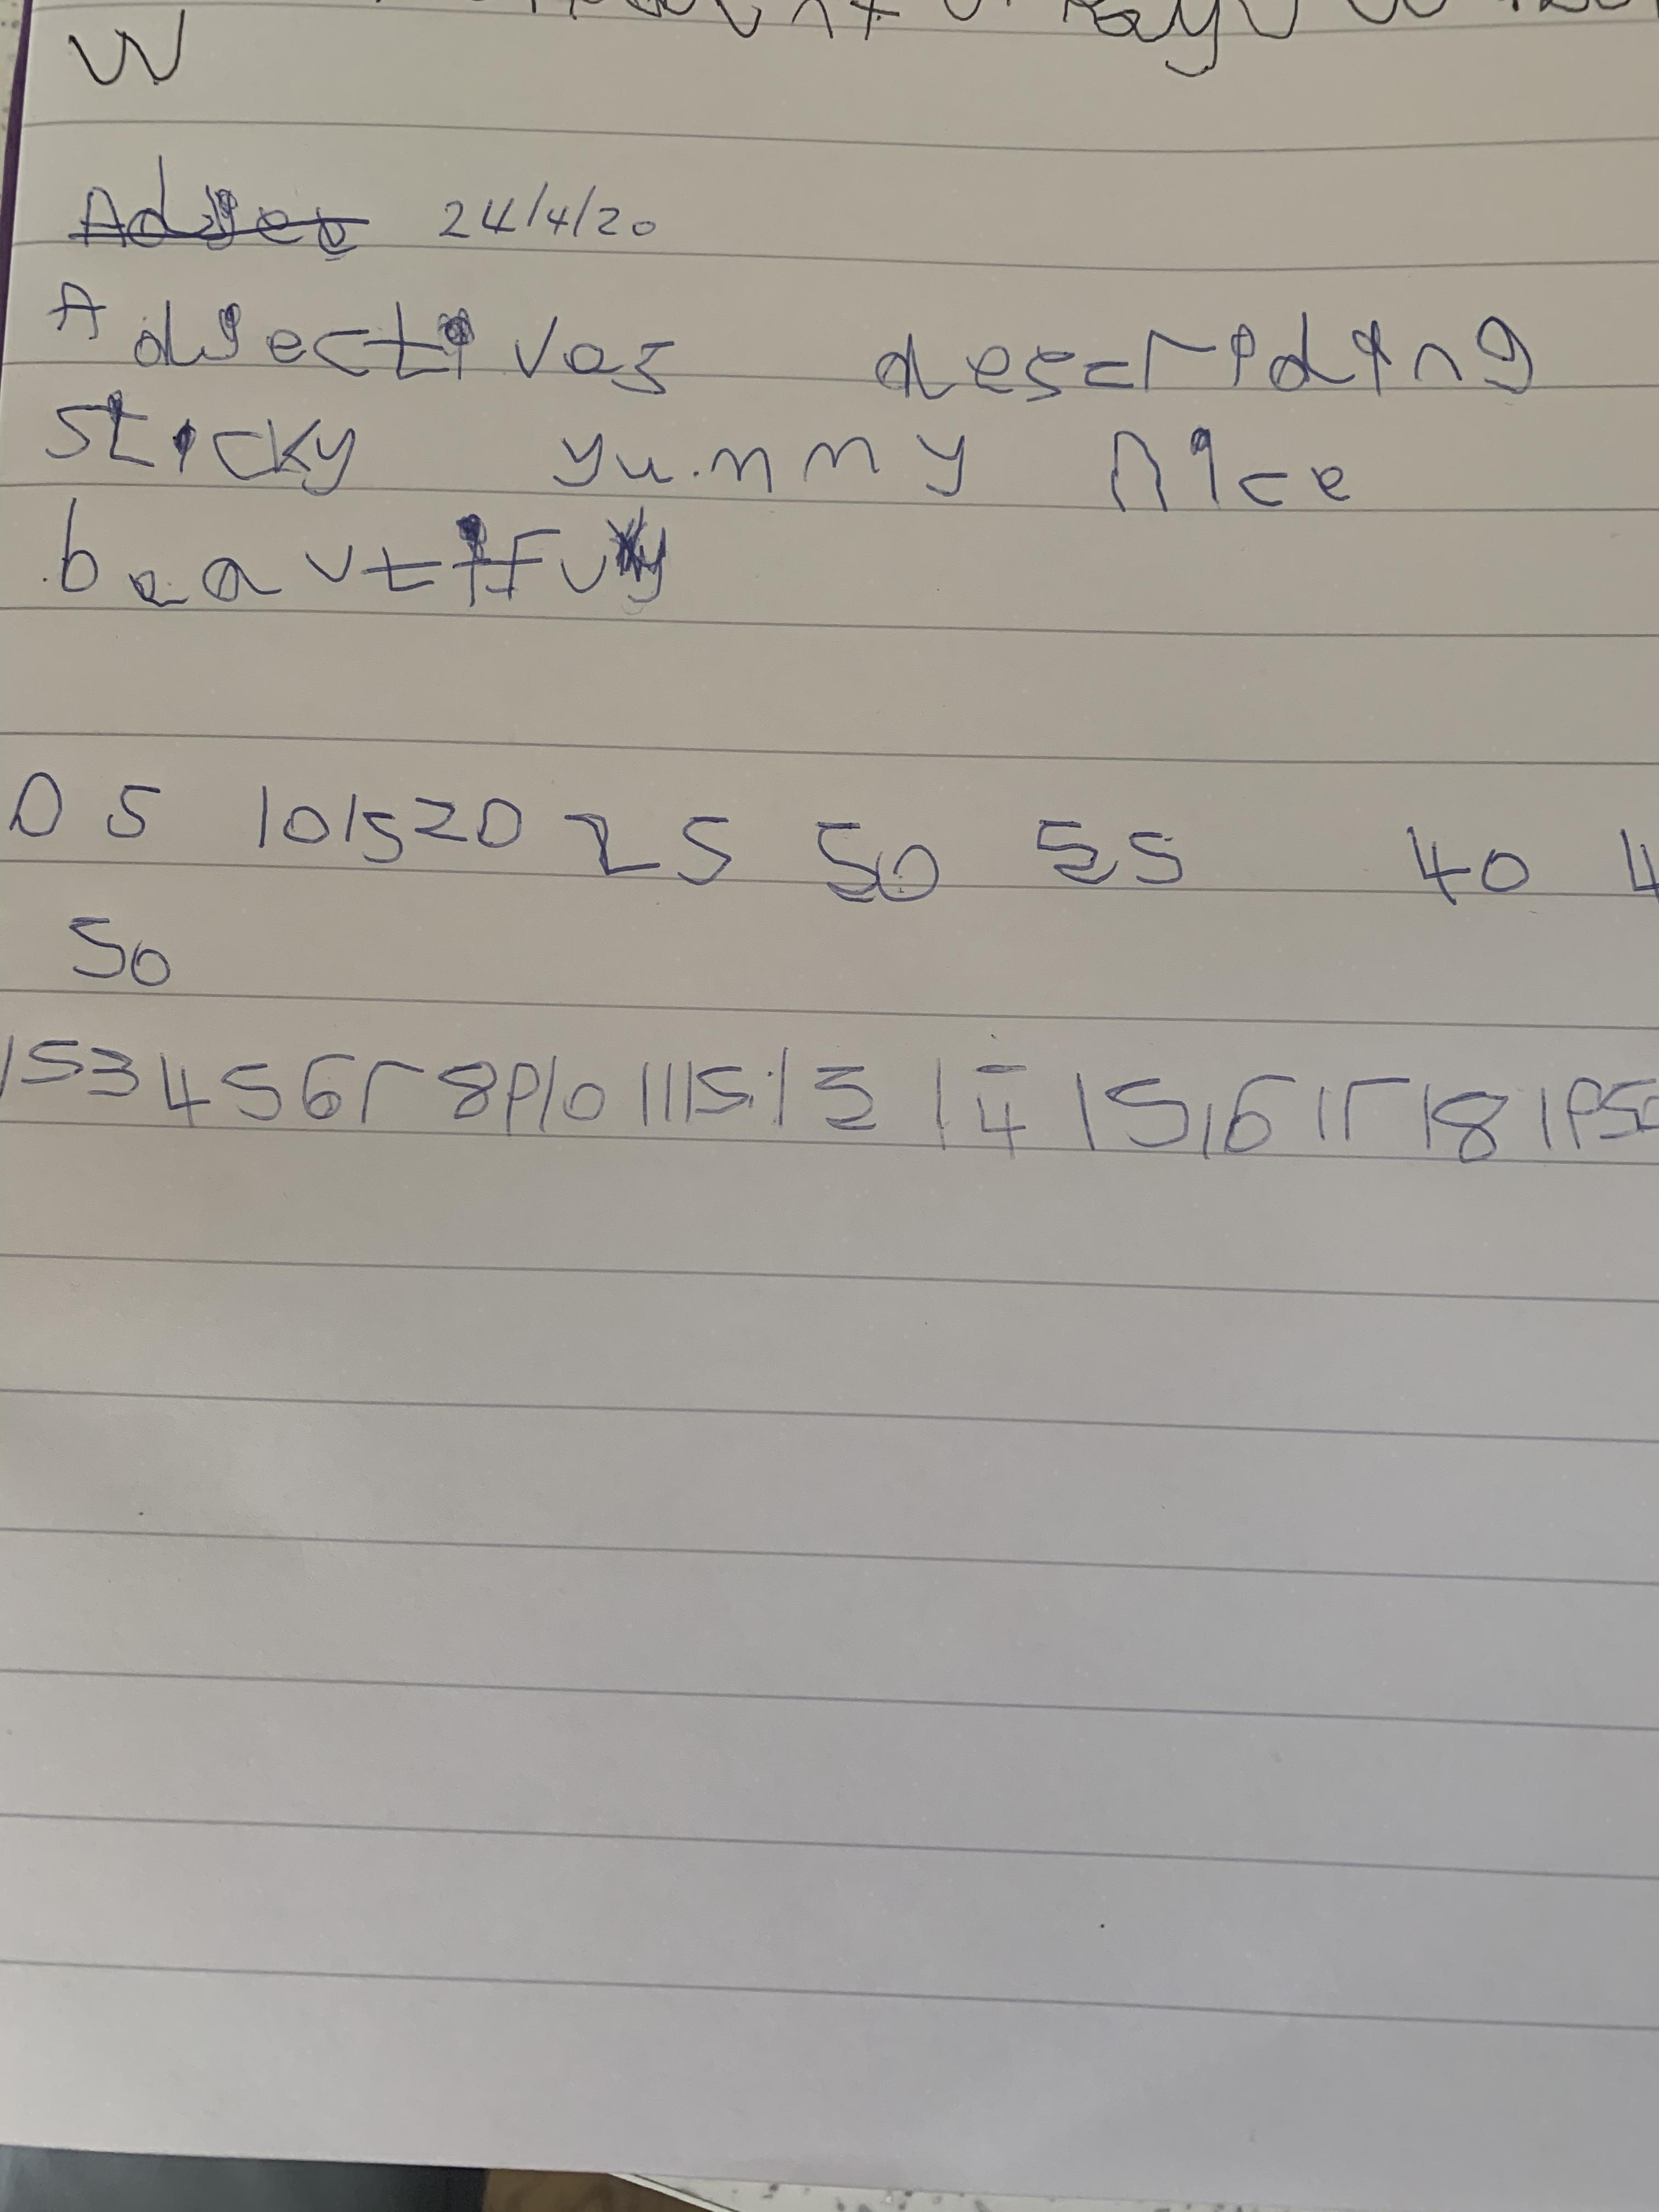 W
Adjec 24/4/20
Adjectives descriding
sticky yummy nice
beautifuly
0 5 10 15 20 25 50 55 40 4
50
1 5 3 4 5 6 7 8 9 10 11 15 13 14 15 16 17 18 19 50